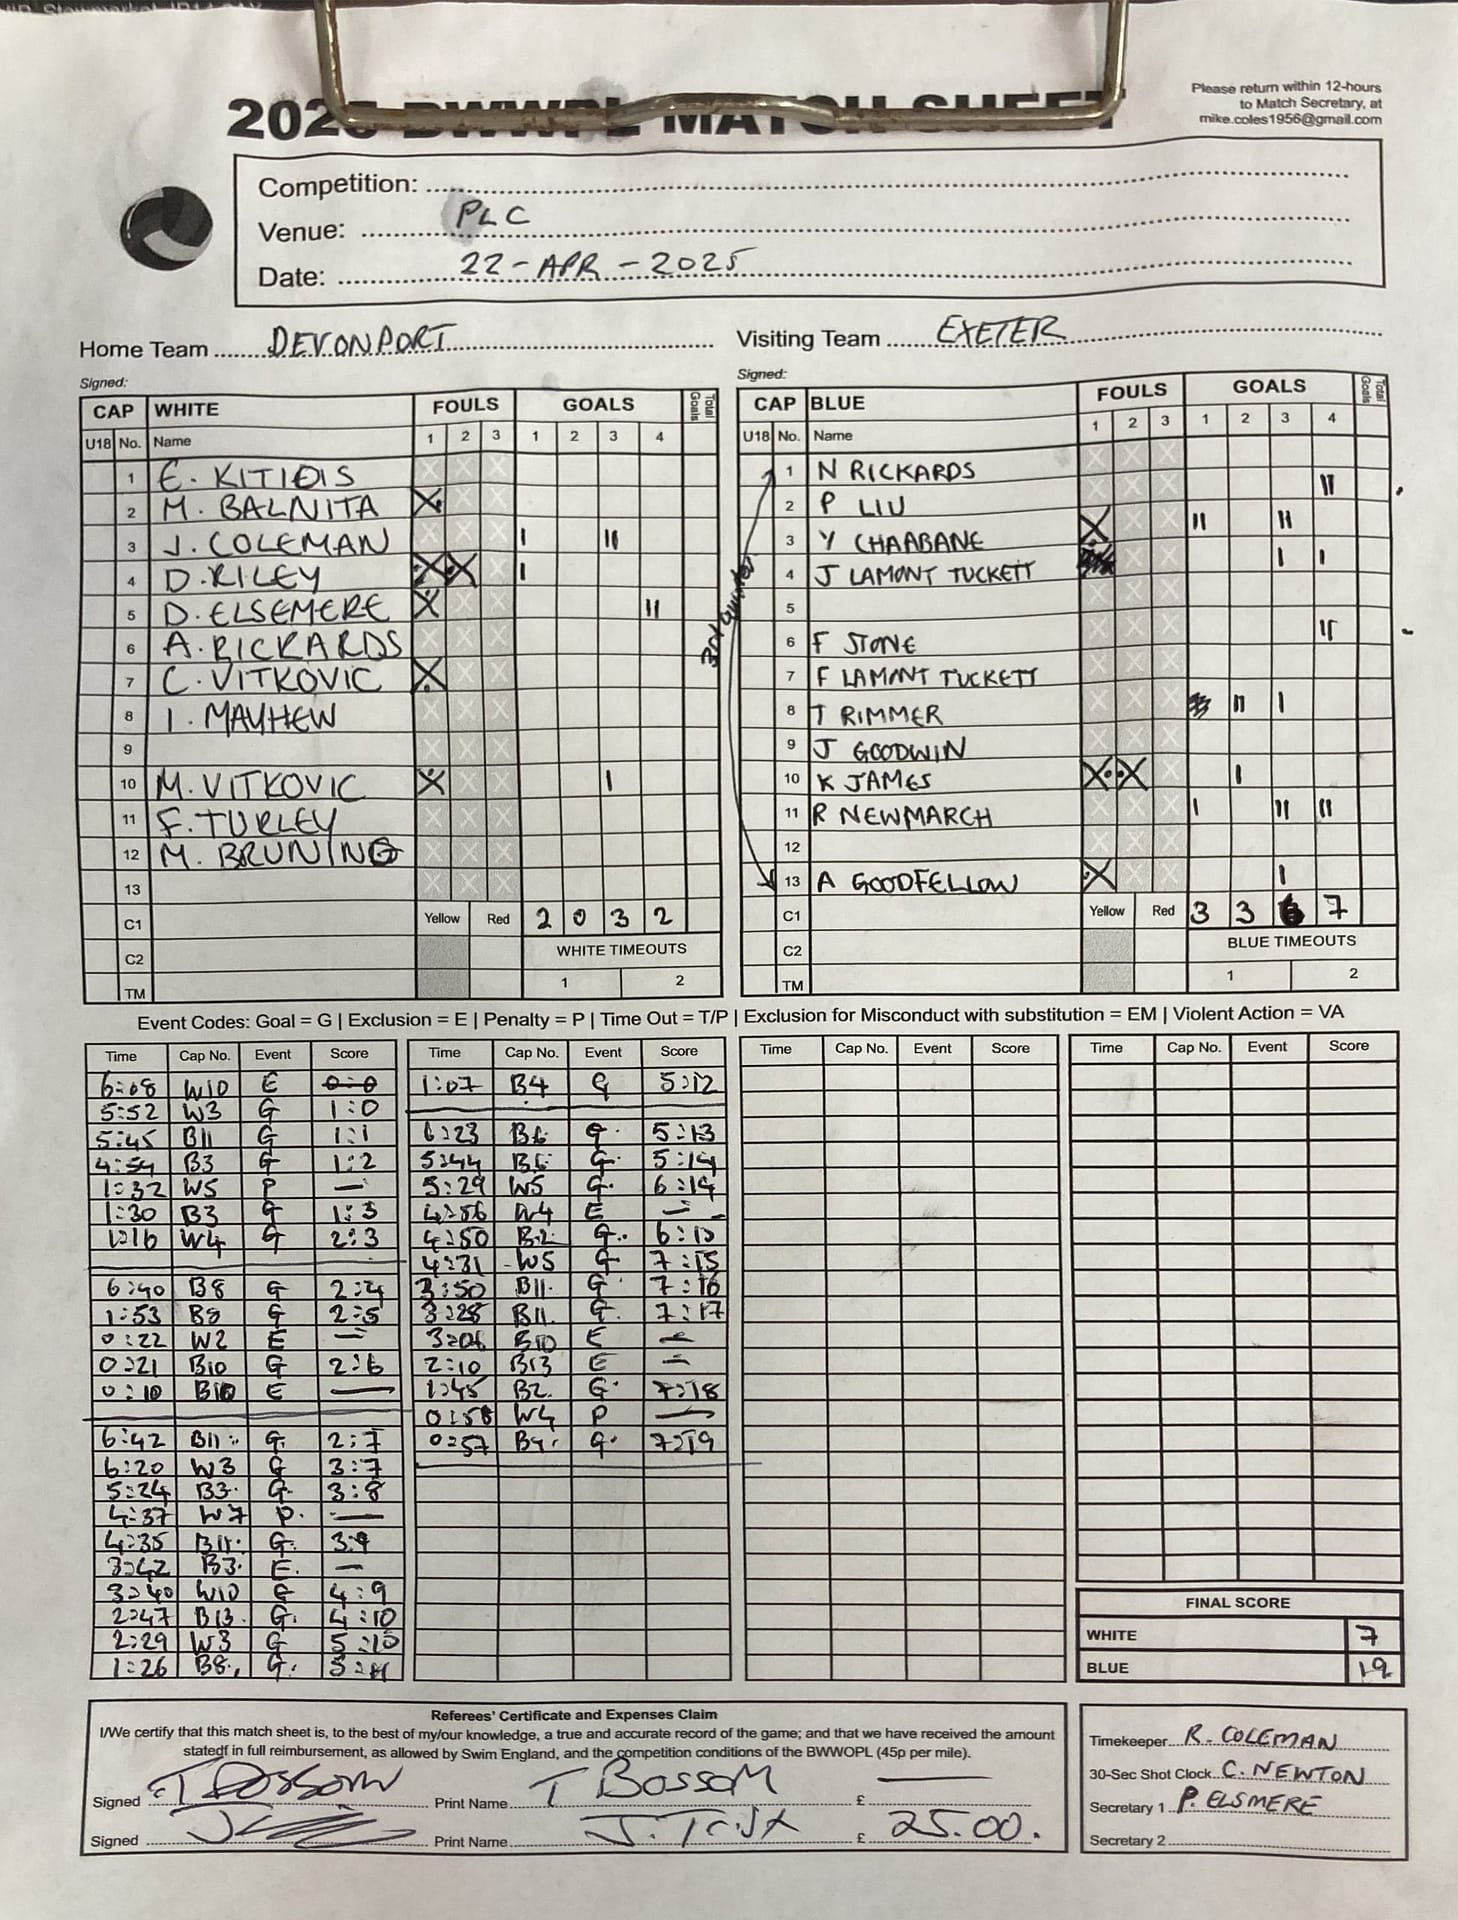 2025 BWWPL MATCH SHEET
Please return within 12-hours
to Match Secretary, at
mike.coles1956@gmail.com
Competition:
Venue: PLC
Date: 22-APR-2025
Home Team DEVONPORT
Visiting Team EXETER
Signed:
CAP WHITE FOULS GOALS Total Goals
U18 No. Name 1 2 3 1 2 3 4
1 E. KITIDIS
2 M. BALNITA X
3 J. COLEMAN I II
4 D. RILEY X X I
5 D. ELSEMERE X II
6 A. RICKARDS
7 C. VITKOVIC X
8 I. MAYHEW
9
10 M. VITKOVIC X I
11 F. TURLEY
12 M. BRUNING
13
C1 Yellow Red 2 0 3 2
C2 WHITE TIMEOUTS
TM 1 2
Signed:
CAP BLUE FOULS GOALS Total Goals
U18 No. Name 1 2 3 1 2 3 4
1 N RICKARDS
2 P LIU II
3 Y CHAABANE X II II
4 J LAMONT TUCKETT I I
5
6 F STONE II
7 F LAMONT TUCKETT
8 T RIMMER II I
9 J GOODWIN
10 K JAMES X X I
11 R NEWMARCH I II II
12
13 A GOODFELLOW X I
3rd Quarter
C1 Yellow Red 3 3 6 7
C2 BLUE TIMEOUTS
TM 1 2
Event Codes: Goal = G | Exclusion = E | Penalty = P | Time Out = T/P | Exclusion for Misconduct with substitution = EM | Violent Action = VA
Time Cap No. Event Score
6:08 W10 E 0:0
5:52 W3 G 1:0
5:45 B11 G 1:1
4:54 B3 G 1:2
1:32 W5 P —
1:30 B3 G 1:3
1:16 W4 G 2:3
6:40 B8 G 2:4
1:53 B8 G 2:5
0:22 W2 E —
0:21 B10 G 2:6
0:10 B10 E —
6:42 B11 G 2:7
6:20 W3 G 3:7
5:24 B3 G 3:8
4:37 W7 P —
4:35 B11 G 3:9
3:42 B3 E —
3:40 W10 G 4:9
2:47 B13 G 4:10
2:29 W3 G 5:10
1:26 B8 G 5:11
Time Cap No. Event Score
1:07 B4 G 5:12
6:23 B6 G 5:13
5:44 B6 G 5:14
5:29 W5 G 6:14
4:56 W4 E —
4:50 B2 G 6:15
4:31 W5 G 7:15
3:50 B11 G 7:16
3:28 B11 G 7:17
3:06 B10 E —
2:10 B13 E —
1:45 B2 G 7:18
0:58 W4 P —
0:57 B4 G 7:19
Time Cap No. Event Score
Time Cap No. Event Score
FINAL SCORE
WHITE 7
BLUE 19
Referees' Certificate and Expenses Claim
I/We certify that this match sheet is, to the best of my/our knowledge, a true and accurate record of the game; and that we have received the amount
statedf in full reimbursement, as allowed by Swim England, and the competition conditions of the BWWOPL (45p per mile).
Signed T Bossom Print Name T Bossom £ —
Signed Print Name £ 25.00.
Timekeeper R. COLEMAN
30-Sec Shot Clock C. NEWTON
Secretary 1 P. ELSMERE
Secretary 2